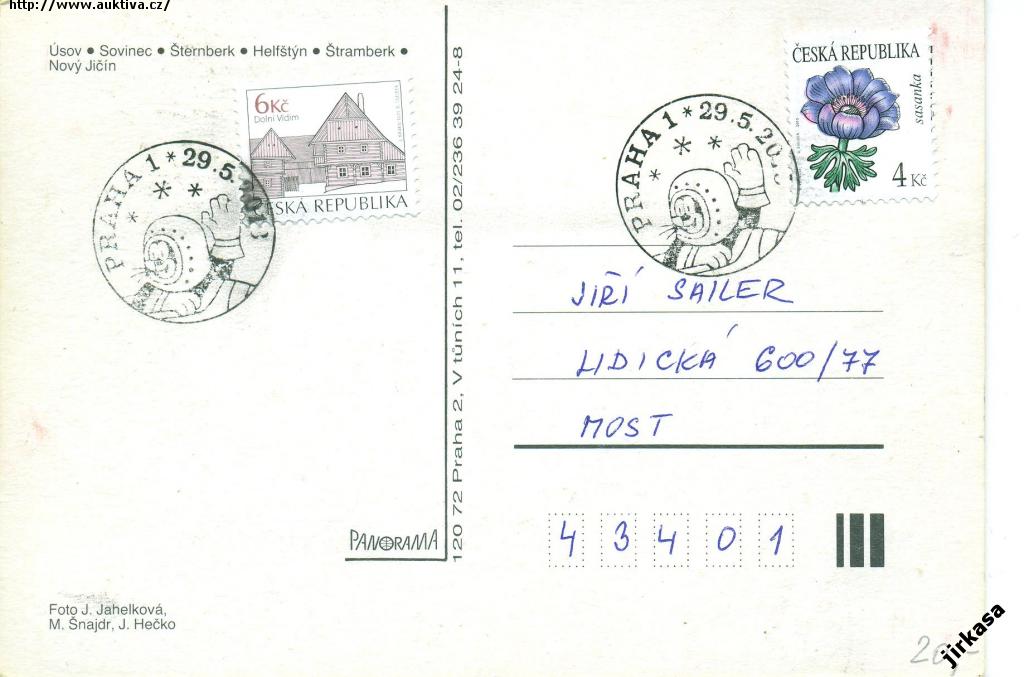 http://www.auktiva.cz/
Úsov ● Sovinec ● Šternberk ● Helfštýn ● Štramberk ●
Nový Jičín
6Kč
Dolní Vidim
ČESKÁ REPUBLIKA
PRAHA 1 * 29.5.2013
120 72 Praha 2, V tůních 11, tel. 02/236 39 24-8
PANORAMA
Foto J. Jahelková,
M. Šnajdr, J. Hečko
ČESKÁ REPUBLIKA
sasanka
4 Kč
PRAHA 1 * 29.5.2013
JIŘÍ SAILER
LIDICKÁ 600/77
MOST
4 3 4 0 1
20,-
jirkasa